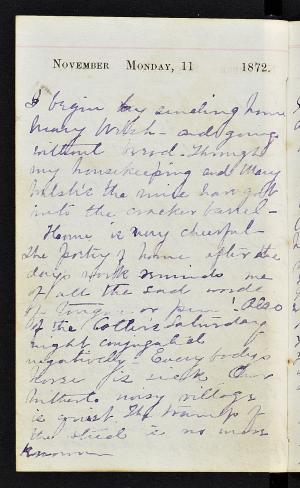 November Monday, 11 1872.
I begin by sending home
Mary Welsh - and going
without bread. Through
my housekeeping and Mary
the mice have got
into the cracker barrel -
Home is very cheerful -
The poetry of home, after the
days work reminds me
of all the sad words
of tongue or pen! Also
of the Cotters Saturday
night conjugated
negatively Everybodys
horse is sick Our
hitherto noisy village
is quiet. The tramp of
the steed is no more
known